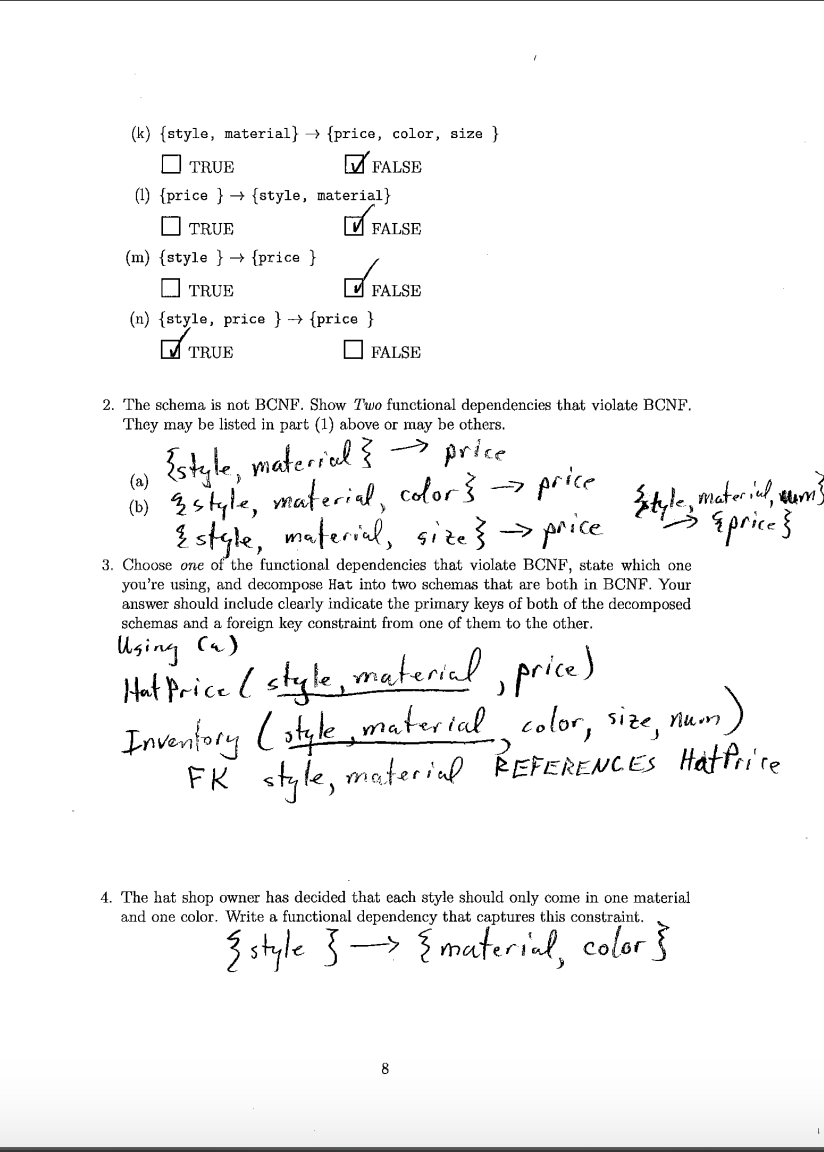 (k) {style, material} → {price, color, size }
TRUE FALSE
(l) {price } → {style, material}
TRUE FALSE
(m) {style } → {price }
TRUE FALSE
(n) {style, price } → {price }
TRUE FALSE
2. The schema is not BCNF. Show Two functional dependencies that violate BCNF.
They may be listed in part (1) above or may be others.
(a) {style, material} → price
(b) {style, material, color} → price
{style, material, num}
→ {price}
{style, material, size} → price
3. Choose one of the functional dependencies that violate BCNF, state which one
you're using, and decompose Hat into two schemas that are both in BCNF. Your
answer should include clearly indicate the primary keys of both of the decomposed
schemas and a foreign key constraint from one of them to the other.
Using (a)
HatPrice (style, material, price)
Inventory (style, material, color, size, num)
FK style, material REFERENCES HatPrice
4. The hat shop owner has decided that each style should only come in one material
and one color. Write a functional dependency that captures this constraint.
{style } → {material, color}
8